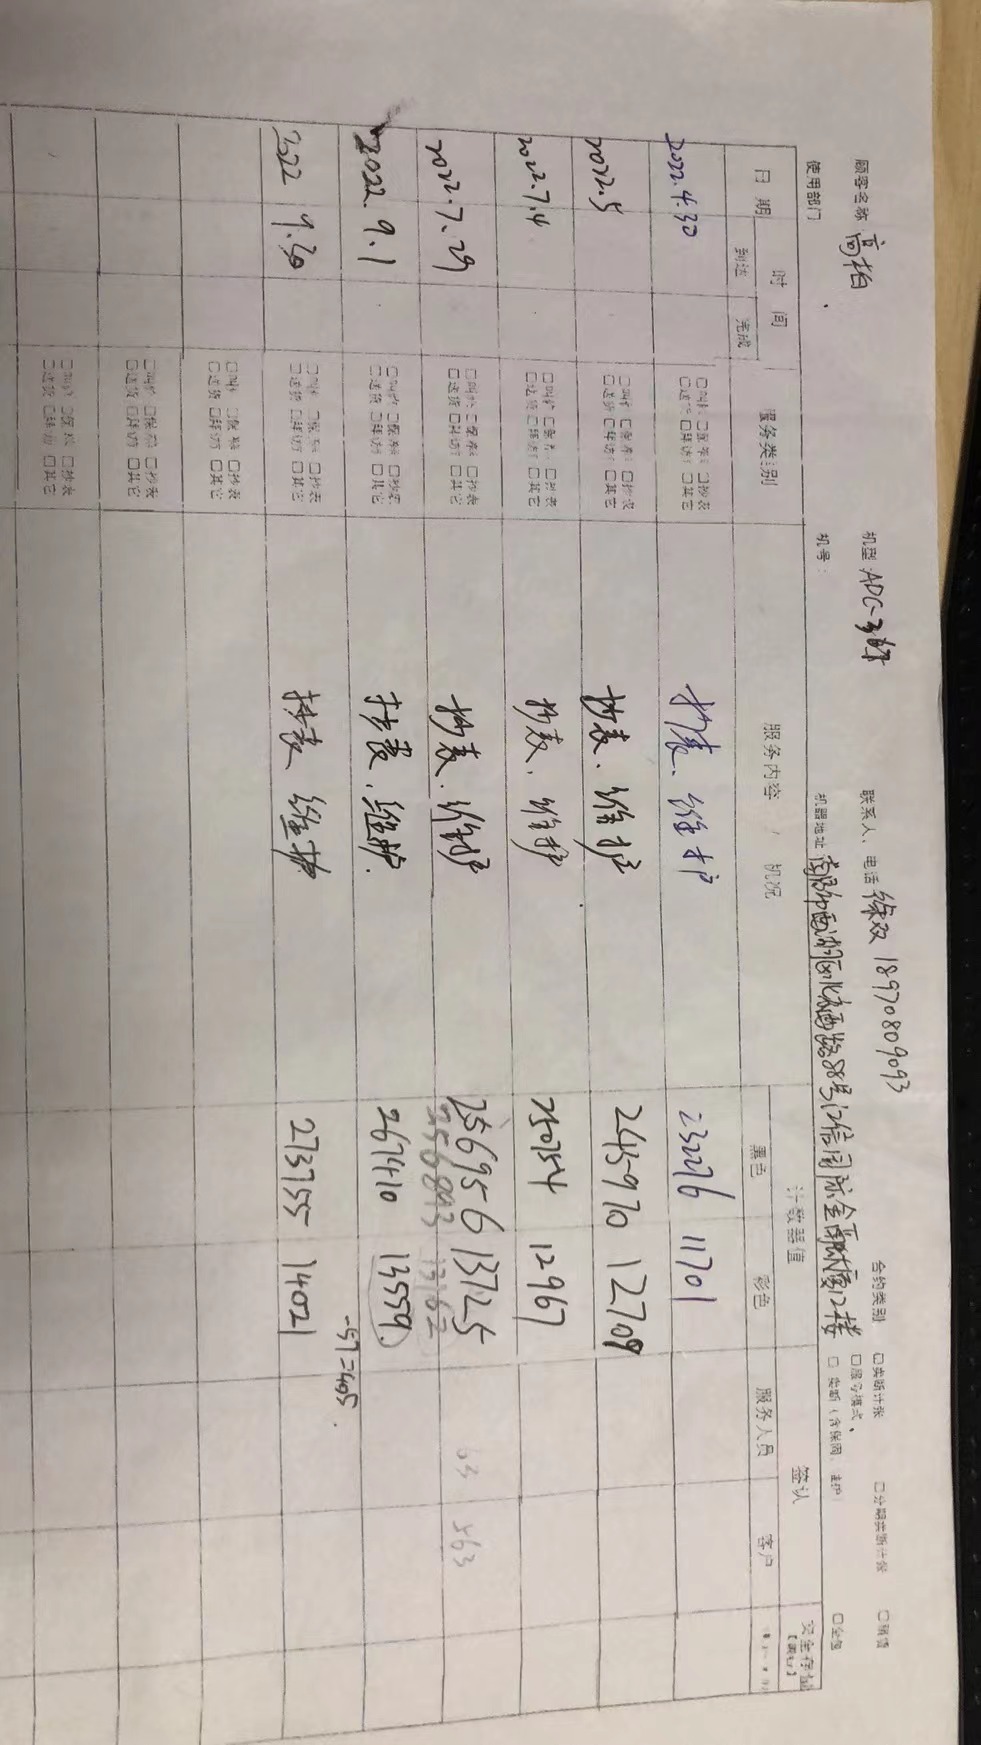 顾客名称 高柏 机型:ADC-3 联系人、电话 徐双 18970809093 合约类别 □卖断计张 □分期卖断计张 □销货
□服务模式、
使用部门 机号: 机器地址 88号 国际金融大厦12楼 □卖断(含保固、维护) □全包
日期 时间 服务类别 服务内容 / 机况 计数器值 签认 安全存量
到达 完成 黑色 彩色 服务人员 客户
2022.4.30 □叫修 □保养 □抄表 抄表、维护 232276 11701
□送货 □拜访 □其它
2022.5 □叫修 □保养 □抄表 抄表、维护 245970 12709
□送货 □拜访 □其它
2022.7.4 □叫修 □保养 □抄表 抄表、维护 250754 12967
□送货 □拜访 □其它
2022.7.29 □叫修 □保养 □抄表 抄表、维护 256956 13725 63 563
□送货 □拜访 □其它 256893 13162
2022.9.1 □叫修 □保养 □抄表 抄表、维护. 267410 13559.
□送货 □拜访 □其它 -57=405.
2022 9.30 □叫修 □保养 □抄表 抄表 维护 273755 14021
□送货 □拜访 □其它
□叫修 □保养 □抄表
□送货 □拜访 □其它
□叫修 □保养 □抄表
□送货 □拜访 □其它
□叫修 □保养 □抄表
□送货 □拜访 □其它